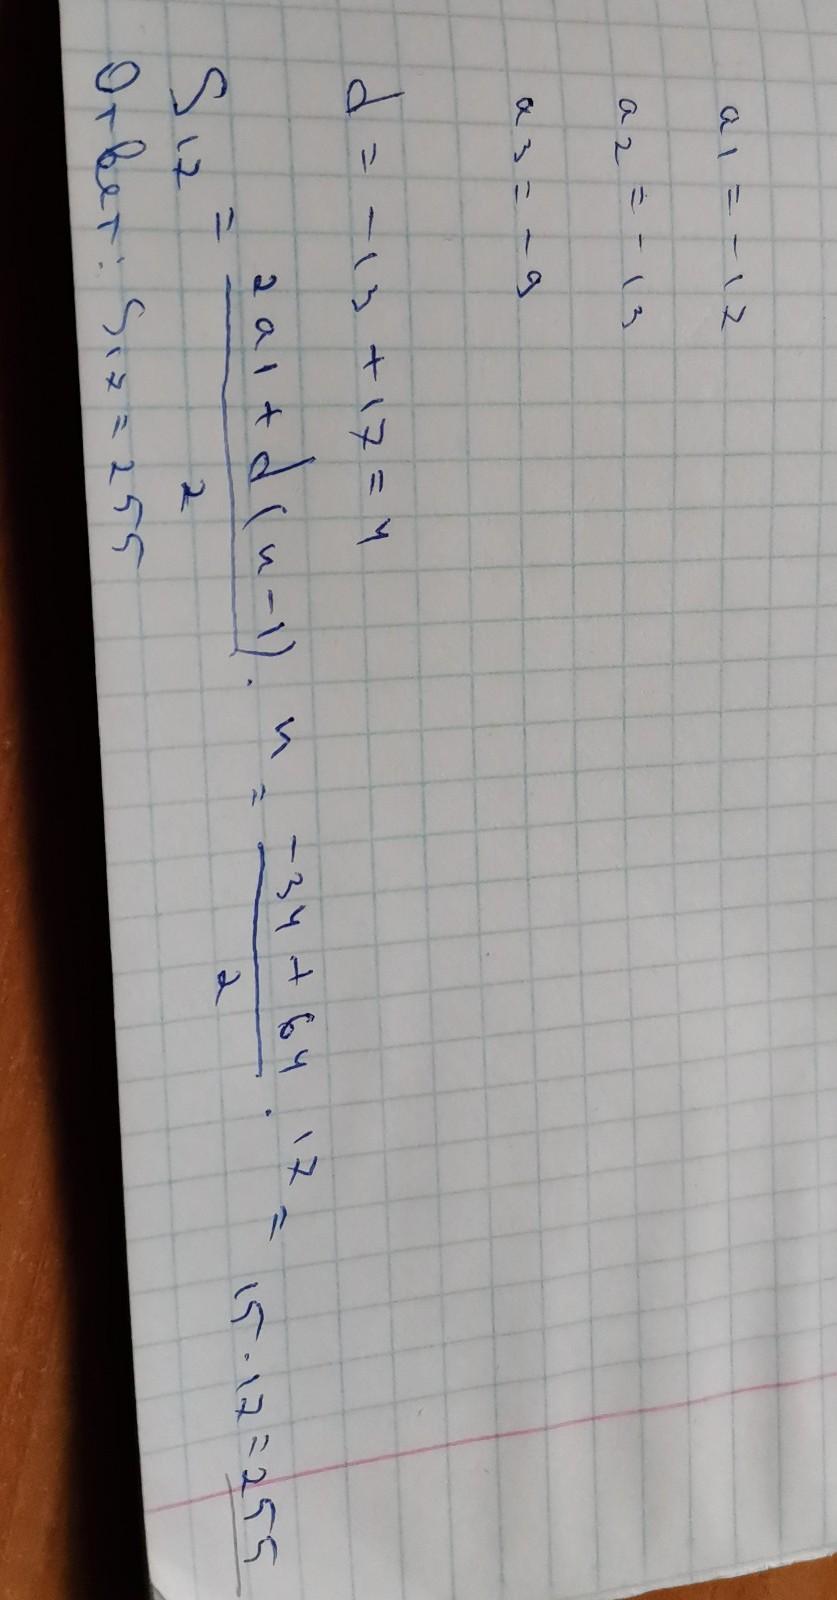 a1 = -17
a2 = -13
a3 = -9
d = -13 + 17 = 4
S17 = \frac{2a1 + d(n-1)}{2} · n = \frac{-34 + 64}{2} · 17 = 15 · 17 = 255
Ответ: S17 = 255